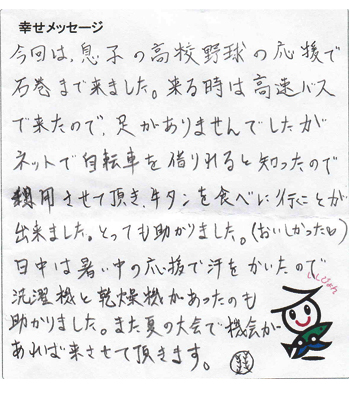 幸せメッセージ
今回は、息子の高校野球の応援で
石巻まで来ました。来る時は高速バス
で来たので、足がありませんでしたが
ネットで自転車を借りれると知ったので
利用させて頂き、牛タンを食べに行くことが
出来ました。とっても助かりました。(おいしかったと)
日中は暑い中の応援で汗をかいたので
洗濯機と乾燥機があったのも
助かりました。また夏の大会で機会が
あれば来させて頂きます。